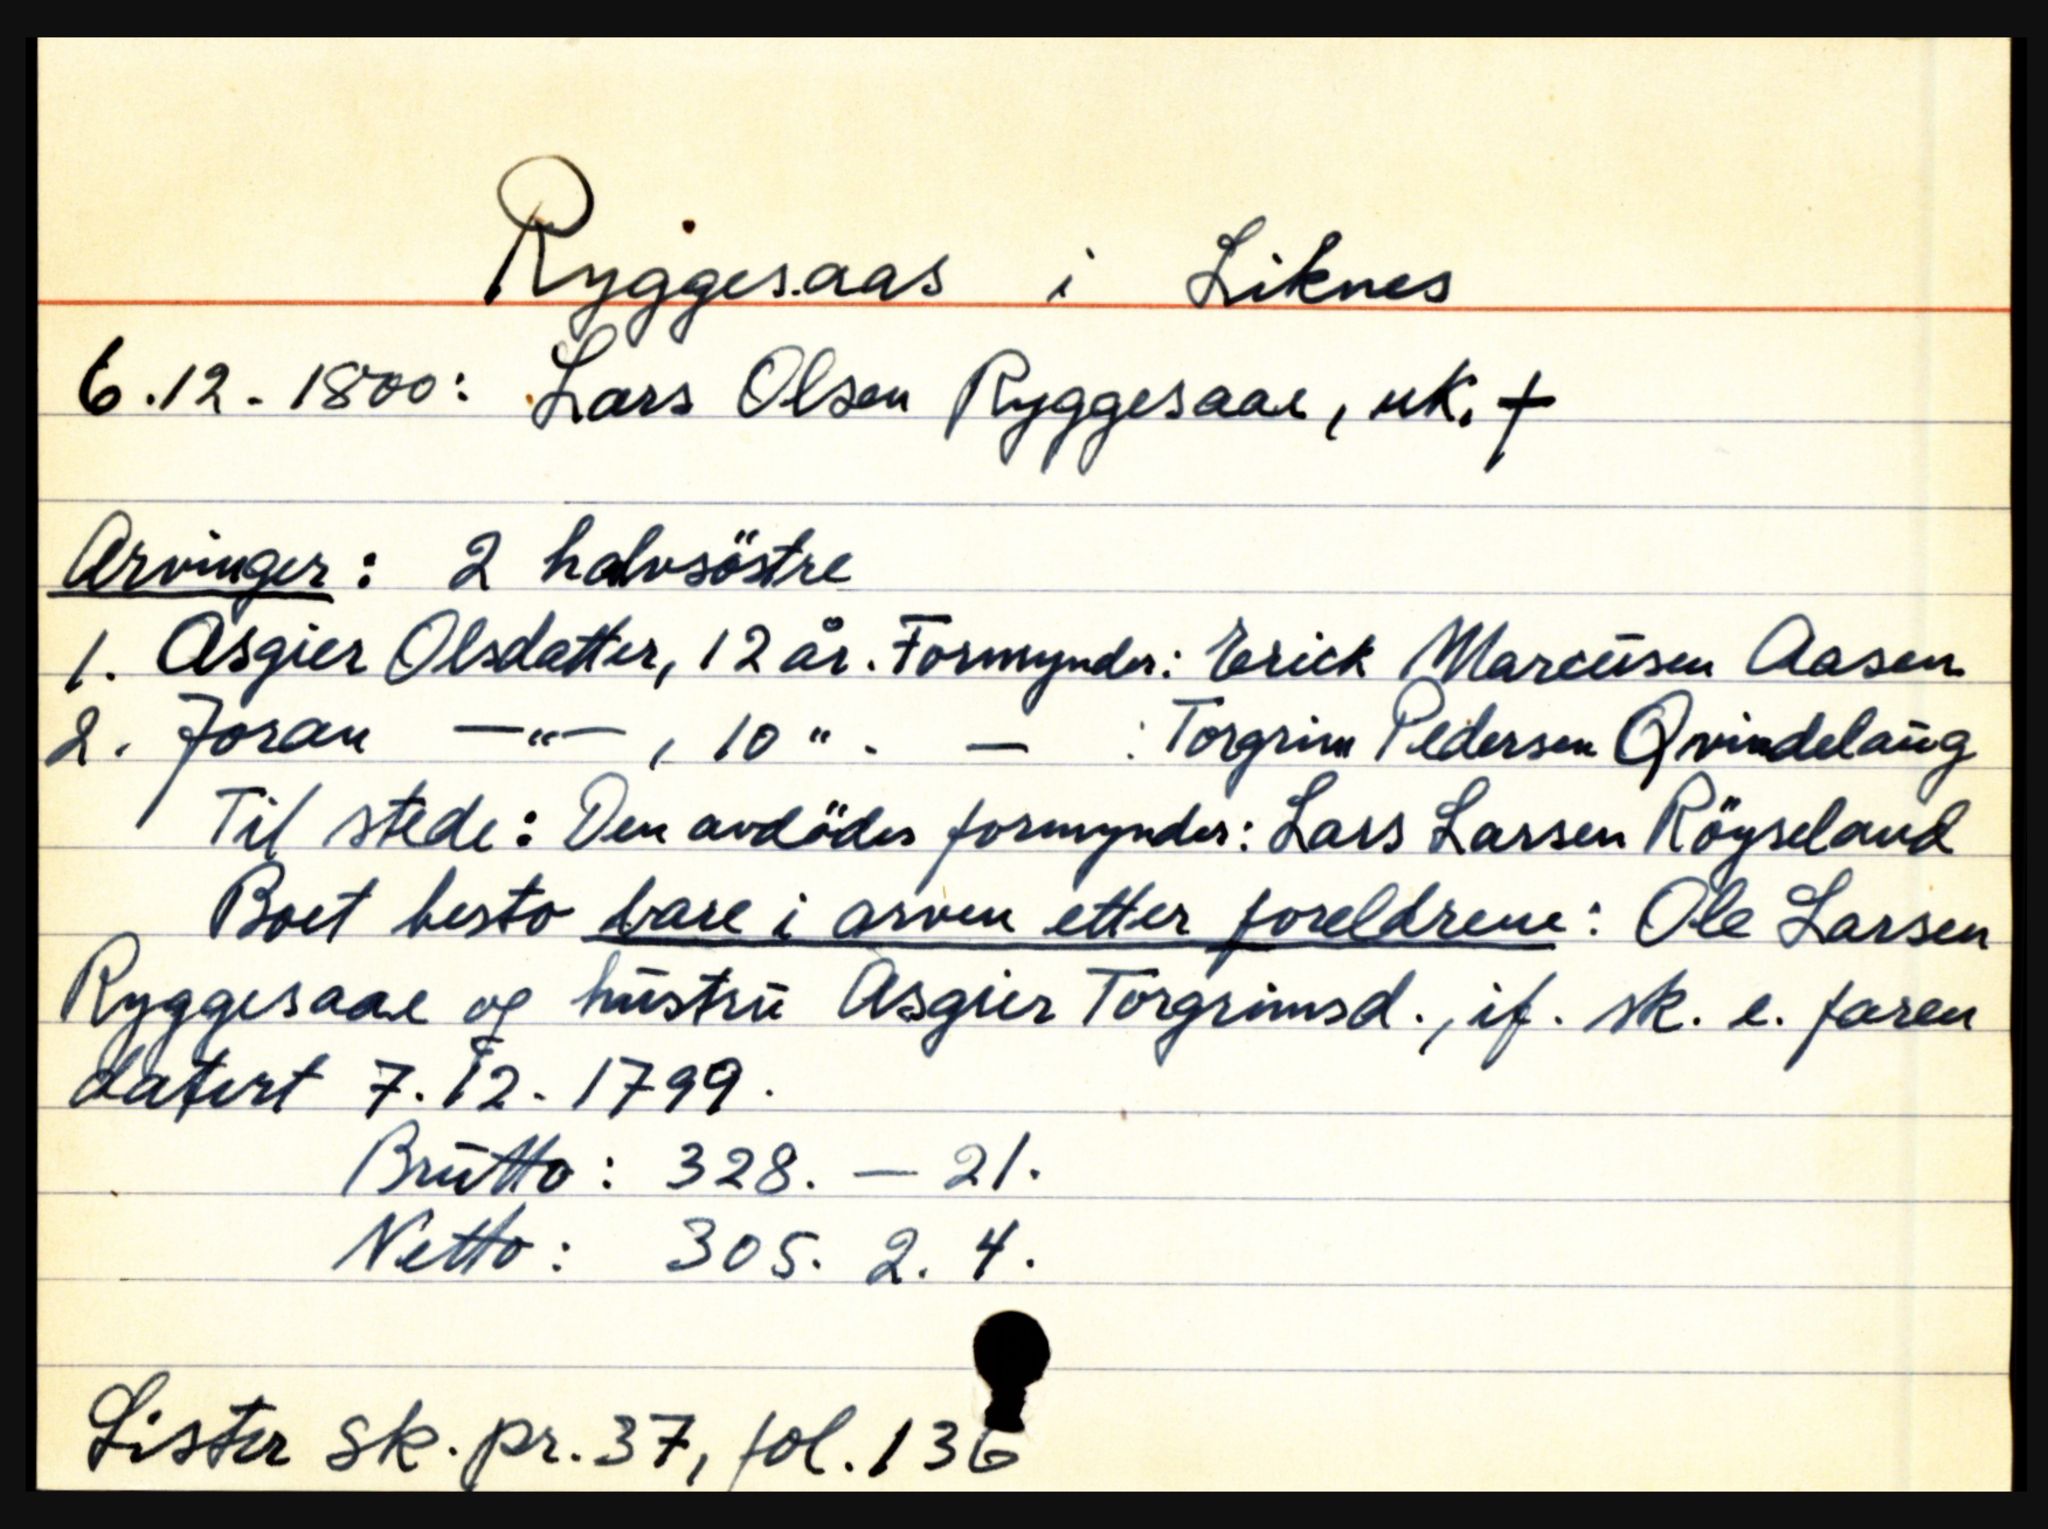 Ryggesaas i Liknes
6.12.-1800: Lars Olsen Ryggesaae, uk. †
Arvinger: 2 halvsöstre
1. Asgier Olsdatter, 12 år. Formynder: Erick Marcusen Aasen
2. Joran —"— , 10 " . — : Torgrim Pedersen Qvindelaug
Til stede: Den avdödes formynder: Lars Larsen Röyseland
Boet besto bare i arven etter foreldrene: Ole Larsen
Ryggesaae og hustru Asgier Torgrimsd., if. sk. e. faren
datert 7.12.1799.
Brutto: 328. — 21.
Netto: 305. 2. 4.
Lister sk. pr. 37, fol. 136